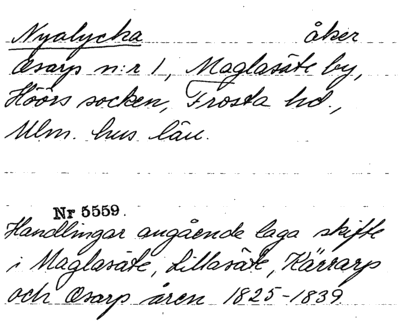 Nyalycka åker
Osarp n:r 1, Maglasäte by,
Höörs socken, Frosta hd.,
Mlm. hus län.
Nr 5559.
Handlingar angående laga skifte
i Maglasäte, Lillasäte, Kärrarp
och Osarp åren 1825-1839